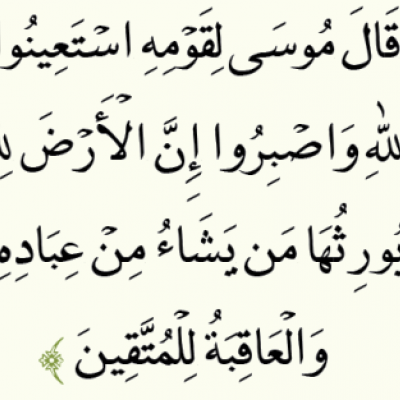 قَالَ مُوسَى لِقَوْمِهِ اسْتَعِينُوا
للَّهِ وَاصْبِرُوا إِنَّ الْأَرْضَ لِ
يُورِثُهَا مَن يَشَاءُ مِنْ عِبَادِهِ
وَالْعَاقِبَةُ لِلْمُتَّقِينَ ﴾